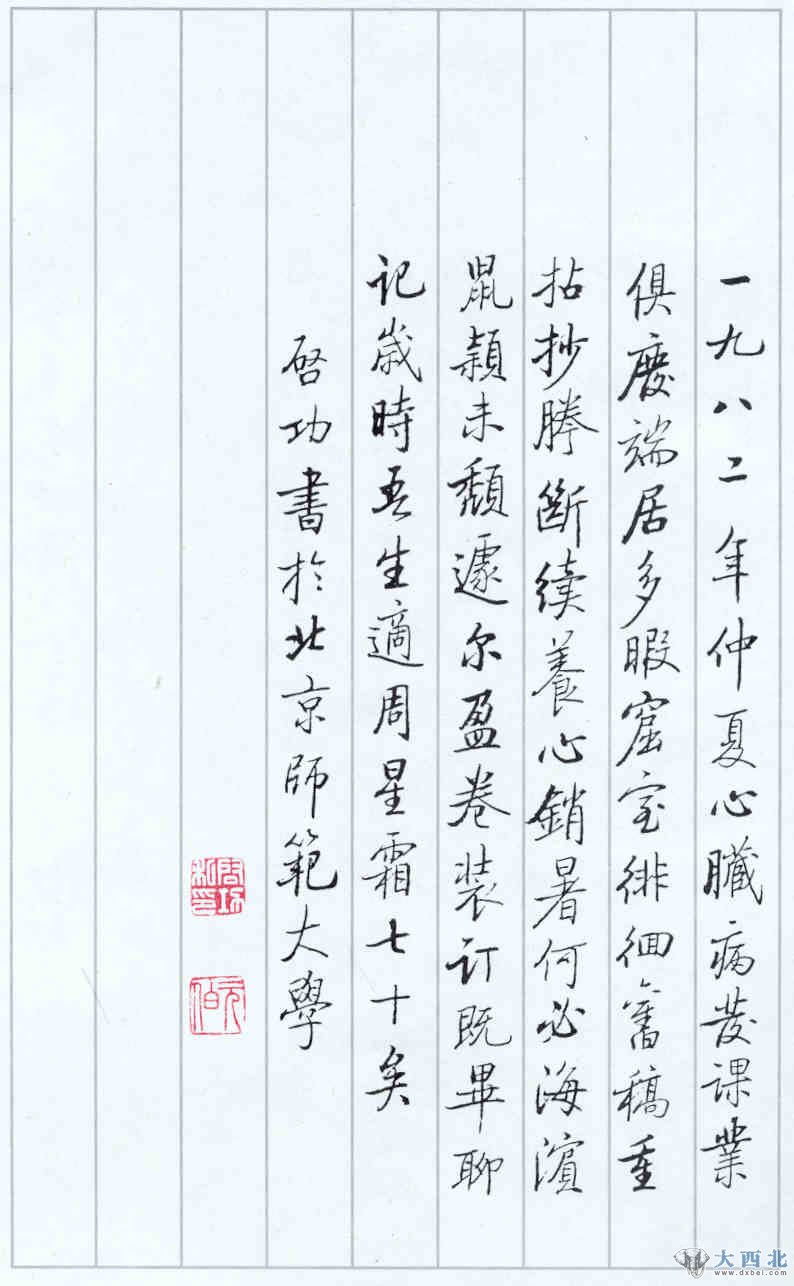 一九八二年仲夏心臟病发课業
俱廢端居多暇窟室徘徊舊稿重
拈抄謄斷續養心銷暑何必海濱
鼠穎未頹遽尔盈卷装订既畢聊
记歲時吾生適周星霜七十矣
启功書於北京師範大學
啟功私印
元伯
大西北
www.dxbei.com